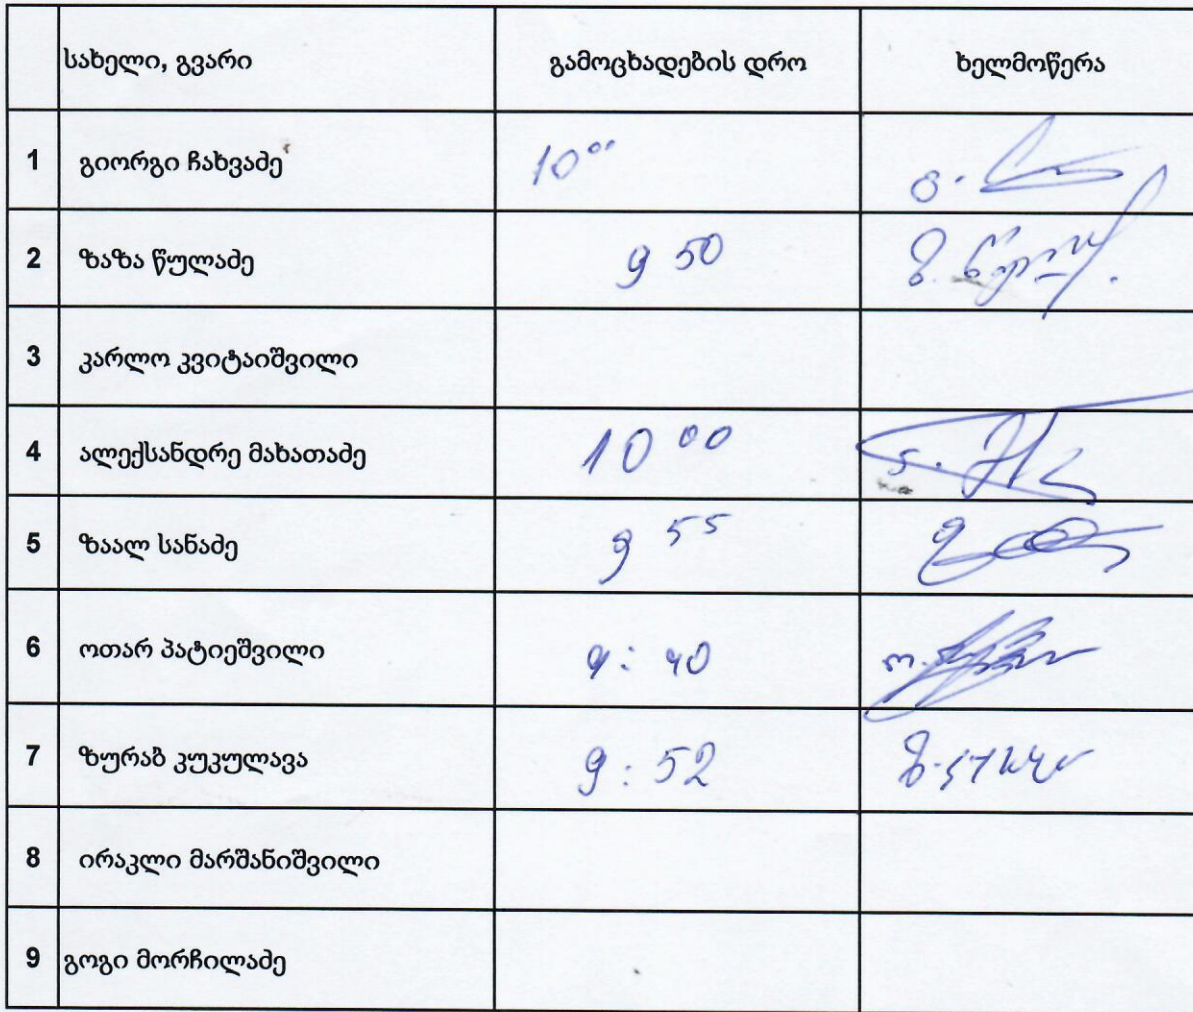 სახელი, გვარი გამოცხადების დრო ხელმოწერა
1 გიორგი ჩახვაძე 10⁰⁰
2 ზაზა წულაძე 9 50
3 კარლო კვიტაიშვილი
4 ალექსანდრე მახათაძე 10 ⁰⁰
5 ზაალ სანაძე 9 ⁵⁵
6 ოთარ პატიეშვილი 9: 40
7 ზურაბ კუკულავა 9:52
8 ირაკლი მარშანიშვილი
9 გოგი მორჩილაძე